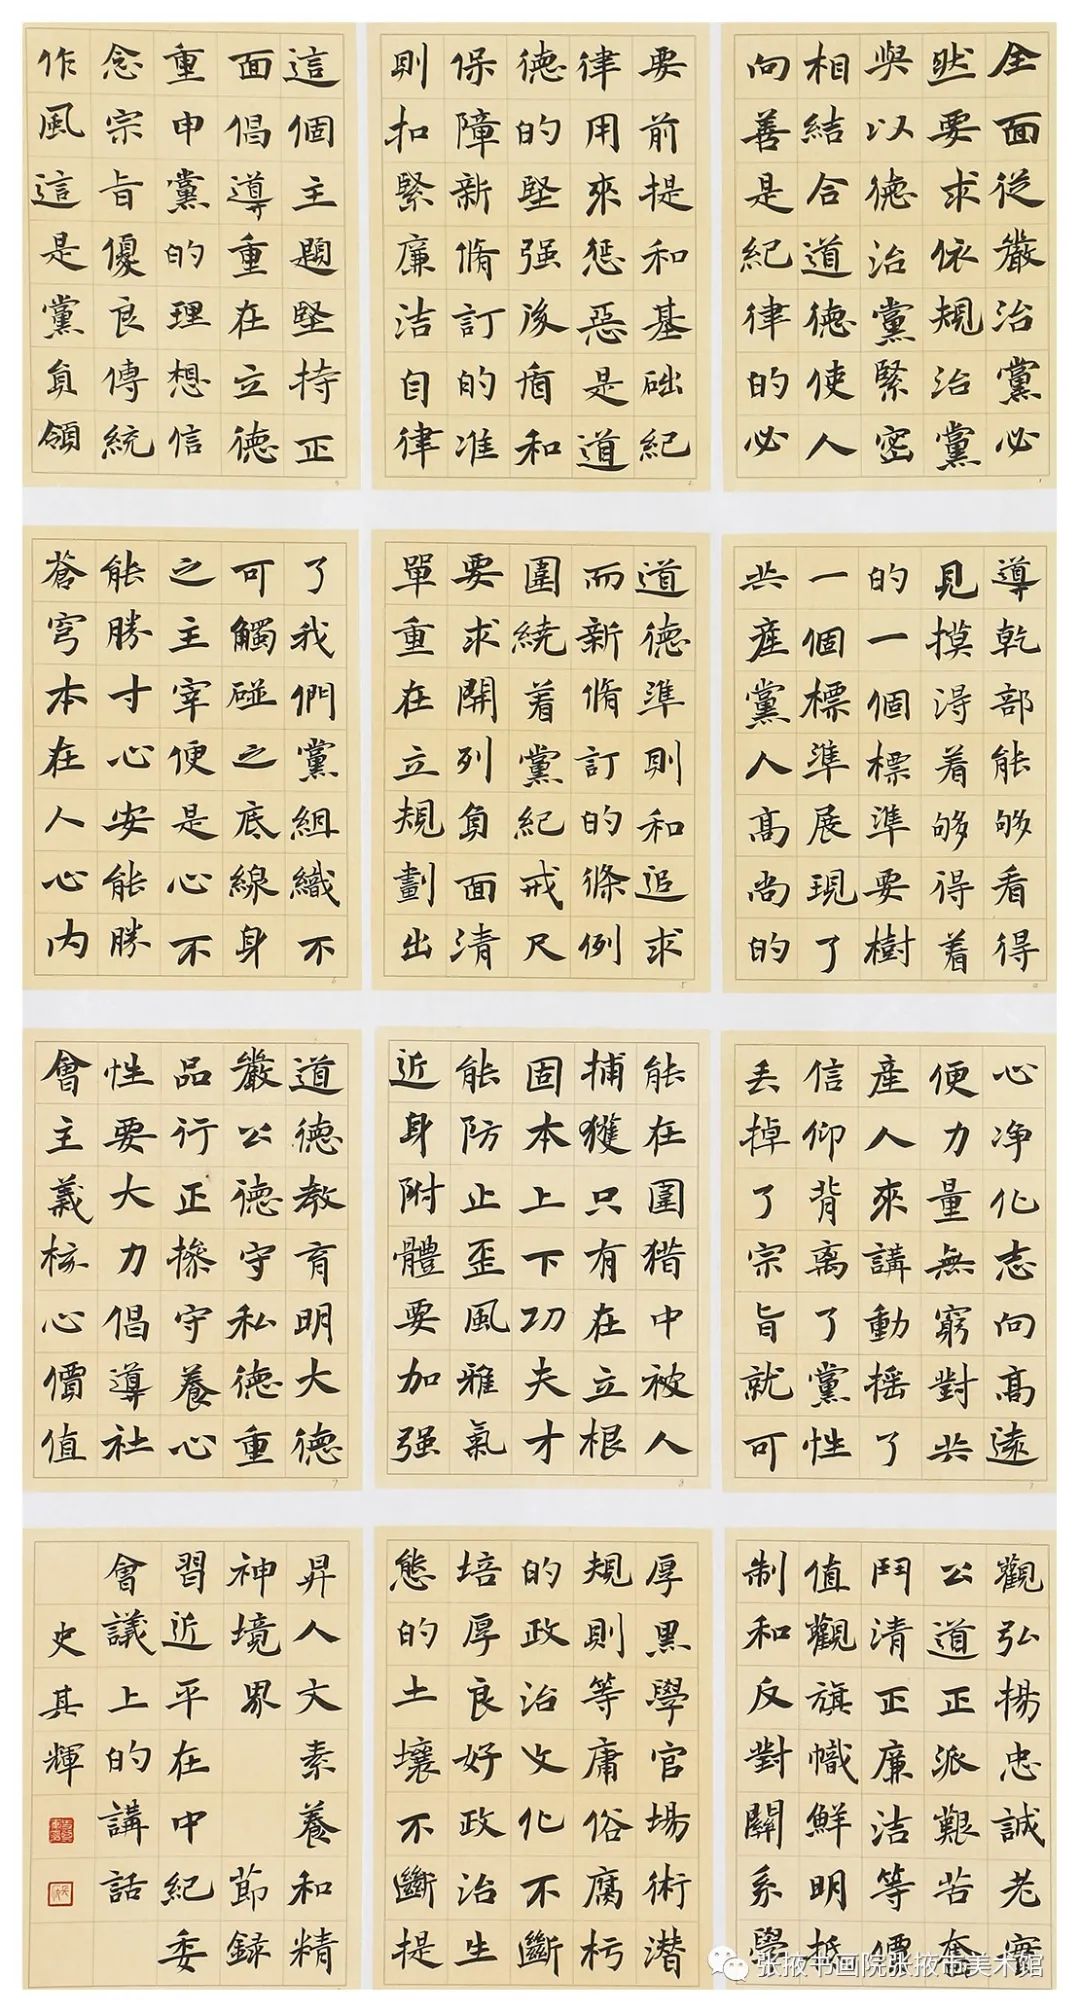 全面從嚴治黨必
然要求依規治黨
與以德治黨緊密
相結合道德使人
向善是紀律的必
要前提和基础紀
律用來惩惡是道
德的堅强後盾和
保障新脩訂的准
則扣緊廉洁自律
這個主題堅持正
面倡導重在立德
重申黨的理想信
念宗旨優良傳統
作風這是黨員領
導乾部能够看得
見摸得着够得着
的一個標準要樹
一個標準展現了
共産黨人高尚的
道德準則和追求
而新脩訂的條例
圍繞着黨紀戒尺
要求開列負面清
單重在立規劃出
了我們黨組織不
可觸碰之底線身
之主宰便是心不
能勝寸心安能勝
蒼穹本在人心内
心净化志向高遠
便力量無窮對共
産人來講動摇了
信仰背离了黨性
丢掉了宗旨就可
能在圍猎中被人
捕獲只有在立根
固本上下功夫才
能防止歪風雅氣
近身附體要加强
道德教育明大德
嚴公德守私德重
品行正操守養心
性要大力倡導社
會主義核心價值
觀弘揚忠誠老實
公道正派艱苦奮
鬥清正廉洁等價
值觀旗幟鮮明抵
制和反對關系學
厚黑學官場術潜
規則等庸俗腐朽
的政治文化不斷
培厚良好政治生
態的土壤不斷提
昇人文素養和精
神境界 節録
習近平在中紀委
會議上的講話
史其輝
张掖书画院张掖市美术馆